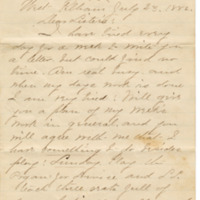 West Pelham July 29, 1882.
Dear Sisters:
I have tried every
day for a week to write you
a letter but could find no
time. Am real busy, and
when my days work is done
I am very tired. Will give
you a plan of my weeks
work in general, and you
will agree with me that I
have something to do besides
play. Sunday Play the
Organ for service and S.S.
teach three